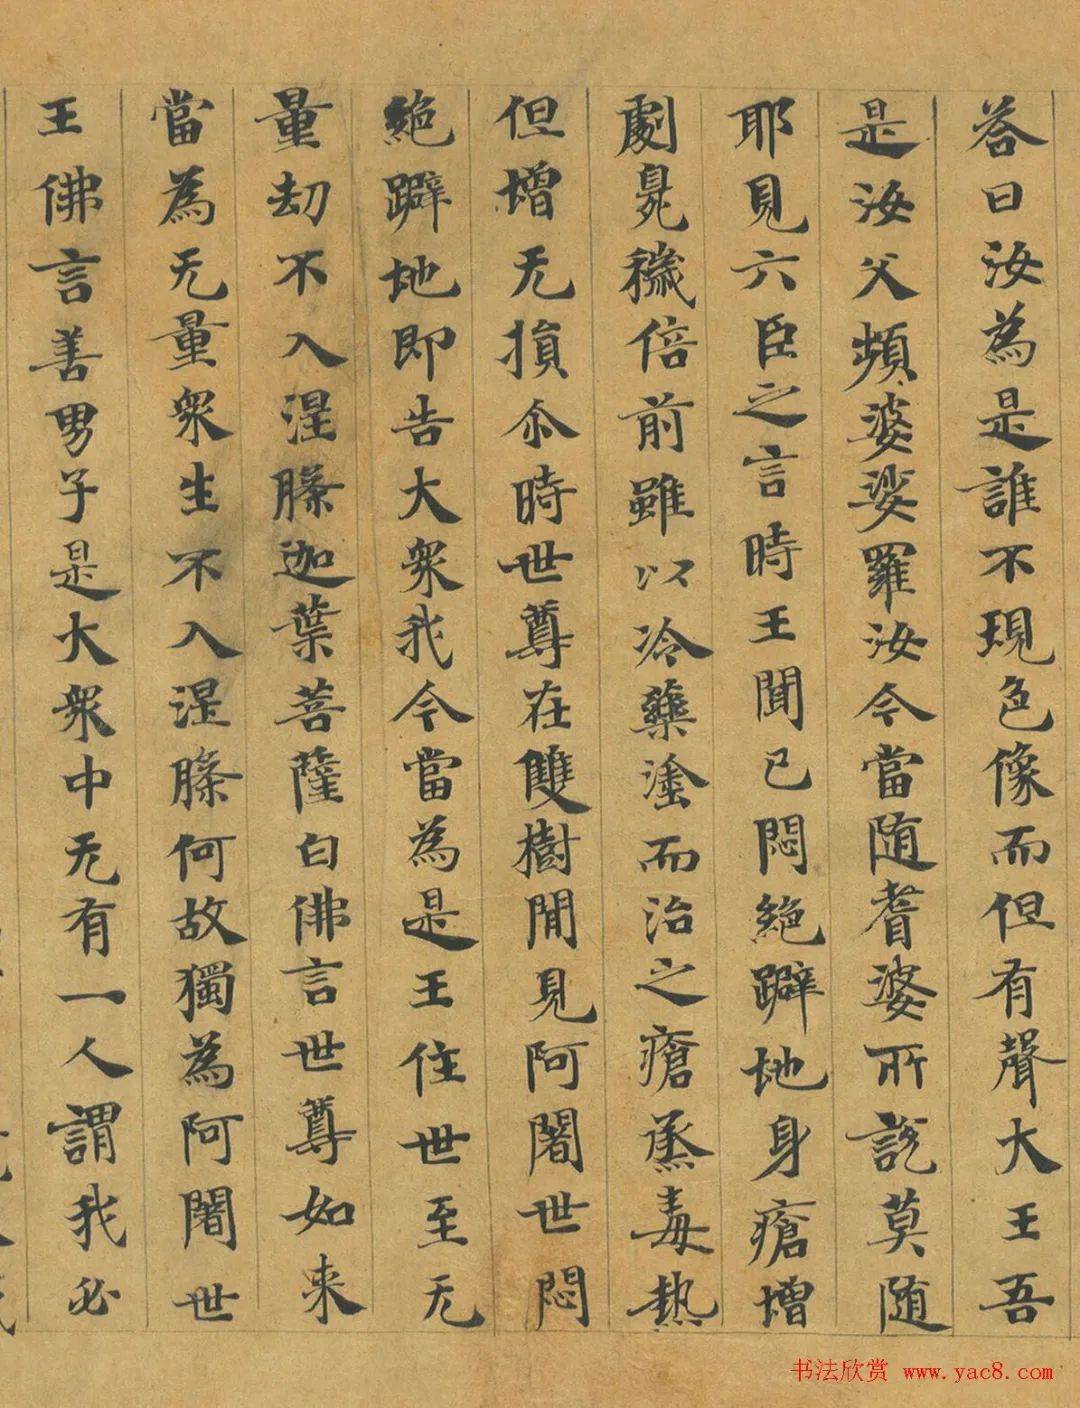 荅曰汝為是誰不現色像而但有聲大王吾
是汝父頻婆娑羅汝今當随耆婆所說莫随
耶見六臣之言時王聞已悶絕躃地身瘡增
劇臰穢倍前雖以冷藥塗而治之瘡蒸毒熱
但增无損尒時世尊在雙樹間見阿闍世悶
絕躃地即告大衆我今當為是王住世至无
量劫不入涅槃迦葉菩薩白佛言世尊如来
當為无量衆生不入涅槃何故獨為阿闍世
王佛言善男子是大衆中无有一人謂我必
书法欣赏 www.yac8.com